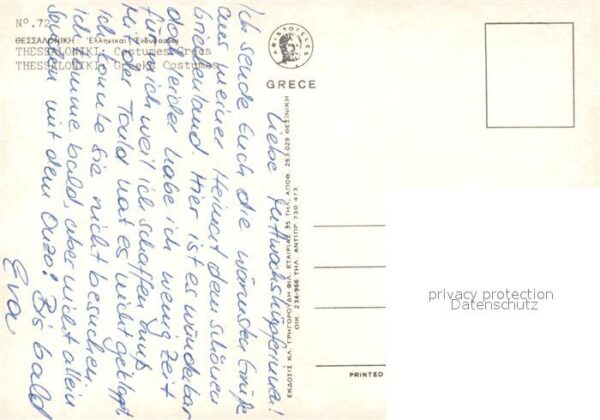 Nº.72
ΘΕΣΣΑΛΟΝΙΚΗ Ἑλληνικαί Ἐνδυμασίαι
THESSALONIKI: Costumes Grecs
THESSALONIKI: Greek Costumes
GRECE
ΕΚΔΟΣΙΣ ΚΛ. ΓΡΗΓΟΡΟΥΔΗ ΦΙΛ. ΕΤΑΙΡΙΑΣ 35 ΤΗΛ. ΑΠΟΘ. 263-029 ΘΕΣ/ΝΙΚΗ
ΟΙΚ 234-966 ΤΗΛ. ΑΝΤΙΠΡ 730 473
PRINTED
Liebe
Ich sende Euch die wärmsten Grüße
aus meiner Heimat dem schönen
Griechenland. Hier ist es wunderbar
doch leider habe ich wenig Zeit
für mich weil ich schaffen muß.
Mit der Tould hat es nicht geklappt
ich konnte Sie nicht besuchen.
Ich komme bald, aber nicht allein
sondern mit dem Ouzo! Bis bald
Eva
privacy protection
Datenschutz